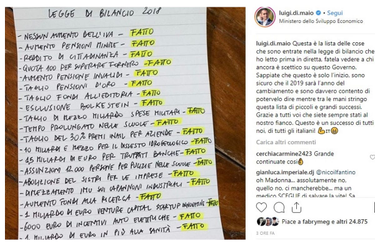 LEGGE DI BILANCIO 2019
- NESSUN AUMENTO DELL'IVA - FATTO
- AUMENTO PENSIONI MINIME - FATTO
- REDDITO DI CITTADINANZA - FATTO
- QUOTA 100 PER SUPERARE FORNERO - FATTO
- AUMENTO PENSIONE INVALIDI - FATTO
- TAGLIO PENSIONI D'ORO - FATTO
- TAGLIO FONDI ALL'EDITORIA - FATTO
- ESCLUSIONE BOLKESTEIN - FATTO
- TAGLIO DI MEZZO MILIARDO SPESE MILITARI - FATTO
- TEMPO PROLUNGATO NELLE SCUOLE - FATTO
- TAGLIO DEL 30% PREMI INAIL PER AZIENDE - FATTO
- MILIARDI E MEZZO PER IL DISSESTO IDROGEOLOGICO - FATTO
- MILIARDI DI EURO PER TRUFFATI BANCHE - FATTO
- ASSUNZIONI 12.000 PERSONE PER PULIZIE NELLE SCUOLE - FATTO
- ABOLIZIONE DEL SISTRI PER LE IMPRESE - FATTO
- IMU SU CAPANNONI INDUSTRIALI - FATTO
- AUMENTO FONDI ALLA RICERCA - FATTO
- 1 MILIARDO DI EURO VENTURE CAPITAL STARTUP - FATTO
- 6000 EURO DI INCENTIVI AUTO ELETTRICHE - FATTO
- 1 MILIARDO DI EURO IN PIÙ ALLA SANITÀ - FATTO
luigi.di.maio
Ministero dello Sviluppo Economico
luigi.di.maio Questa è la lista delle cose
che sono entrate nella legge di bilancio che
ho letto prima in diretta. fatela vedere a chi
ancora è scettico su questo Governo.
Sappiate che questo è solo l'inizio, sono
sicuro che il 2019 sarà l'anno del
cambiamento e sono davvero contento di
potervelo dire mentre tra le mani stringo
questa lista di piccoli e grandi successi.
Grazie a tutti voi che siete sempre stati al
nostro fianco. Questo è un successo di tutti
noi, di tutti gli italiani!
Carica altri commenti
cerchiacarmine2423 Grande
continuate così
gianluca.imperiale.dj @nicolfantino
oh Madonna... assolutamente no,
quello no, ci mancherebbe... ma un
Piace a fabrymeg e altri 24.875